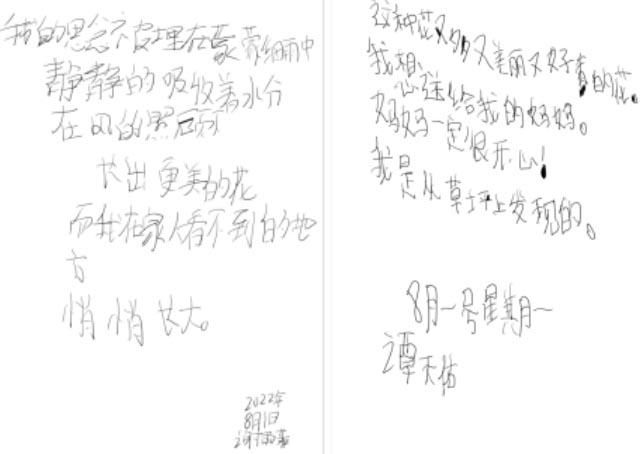 我的思念不管埋在豪蒙细雨中
静静的吸收着水分
在风的照顾
长出更美的花
而我在家人看不到的地
方
悄悄长大。
2022年
8月1日
这种花又多又美丽又好看的花。
我想
送给我的妈妈。
妈妈一定很开心!
我是从草坪上发现的。
8月一号星期一
谭天佑